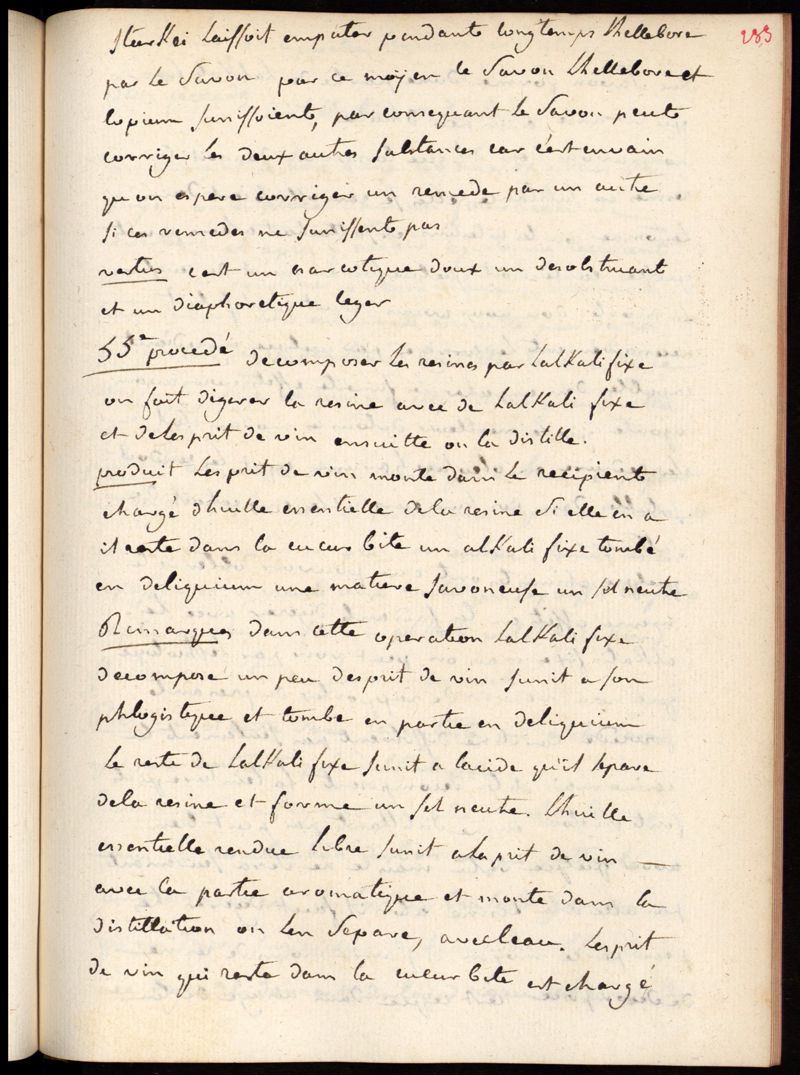 Sterkei laissoit empater pendante longtemps lhellebore
283
par le Savon par ce moyen le Savon lhellebore et
lopium sunissoiente, par consequant le Savon peute
corriger les deux autres substances car cest en vain
quon espere corriger un remede par un autre
si ces remedes ne sunissente pas
vertus cest un narcotique doux un desobstruant
et un diaphoretique leger
55e procedé decomposer les resines par lalkali fixe
on fait digerer la resine avec de lalkali fixe
et de lesprit de vin ensuitte on la distille.
produit lesprit de vin monte dans le recipiente
chargé dhuille essentielle de la resine si elle en a
il reste dans la cucurbite un alkali fixe tombé
en deliquium une matiere savoneuse un sel neutre
Remarques dans cette operation lalkali fixe
decompose un peu desprit de vin sunit a son
phlogistique et tombe en partie en deliquium
le reste de lalkali fixe sunit a lacide qu'il separe
de la resine et forme un sel neutre. lhuille
essentielle rendue libre sunit a lesprit de vin —
avec la partie aromatique et monte dans la
distillation on len separe, avec leau. lesprit
de vin qui reste dans la cucurbite est chargé